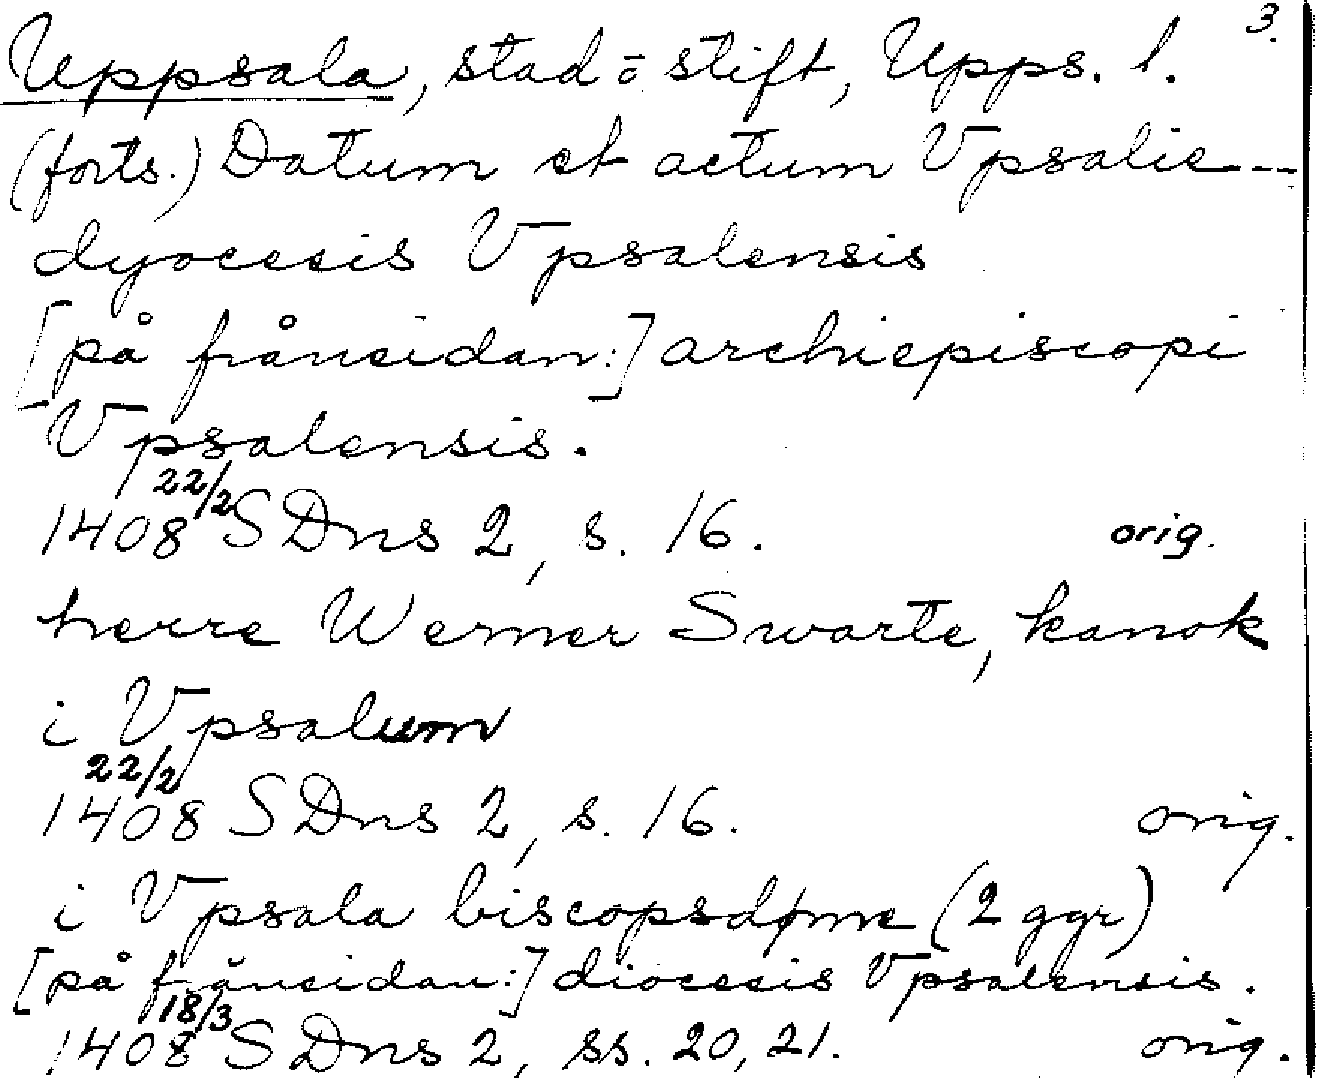 3.
Uppsala, stad o stift, Upps. l.
(forts.) Datum et actum Vpsalie ---
dyocesis Vpsalensis
[på frånsidan:] archiepiscopi
Vpsalensis.
1408 22/2 SDns 2, s. 16. orig.
herre Werner Swarte, kanok
i Vpsalum
1408 22/2 SDns 2, s. 16. orig.
i Vpsala biscopsdøme (2 ggr)
[på frånsidan:] diocesis Vpsalensis.
1408 18/3 SDns 2, ss. 20, 21. orig.